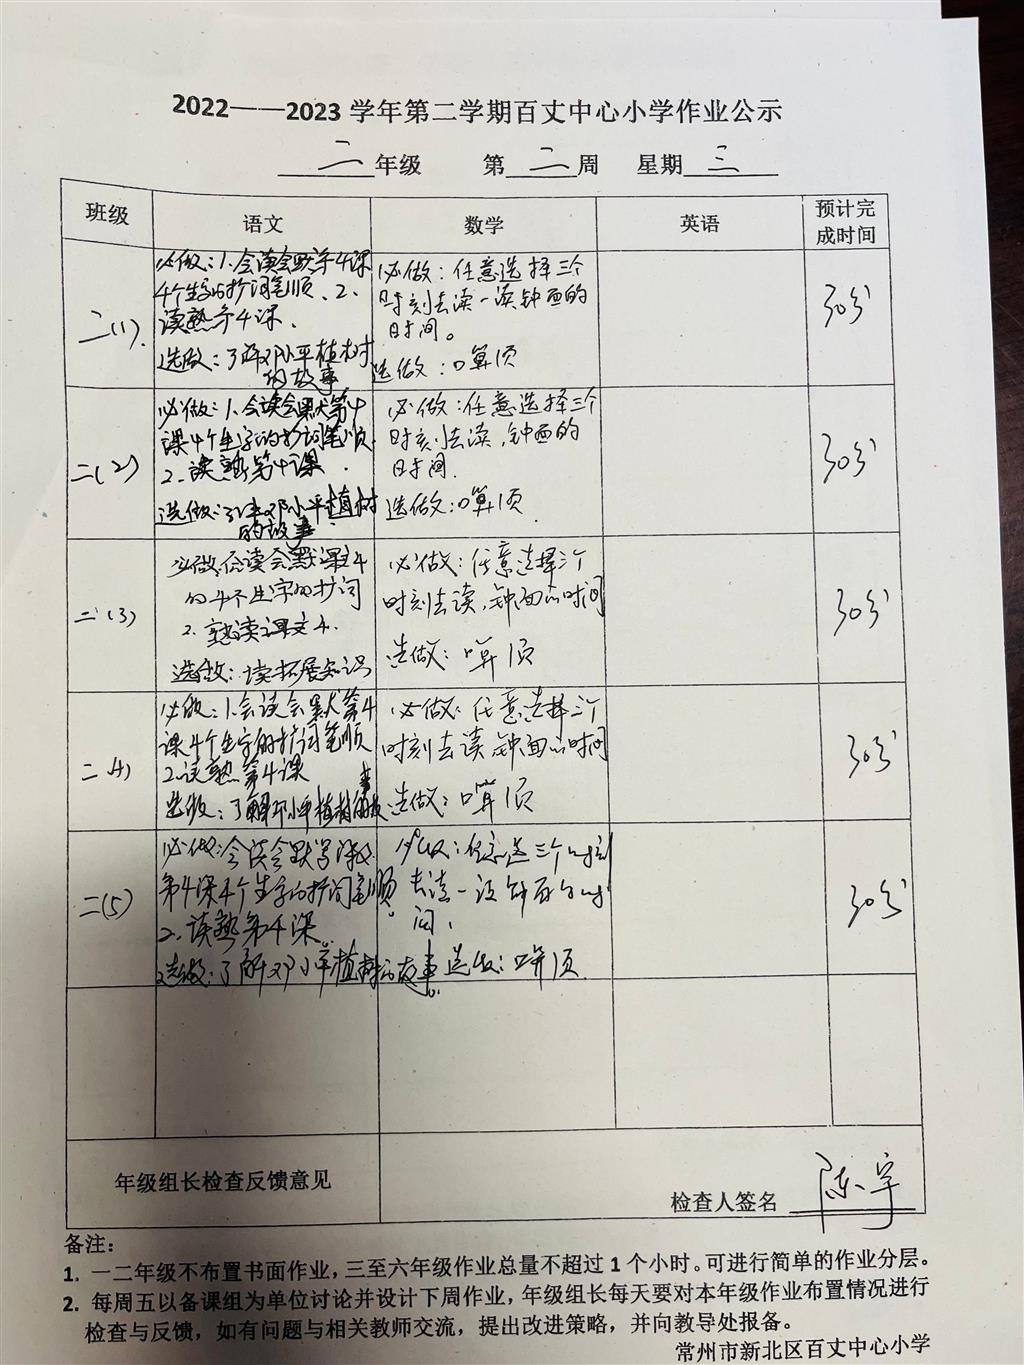 2022——2023 学年第二学期百丈中心小学作业公示
二年级 第二周 星期三
班级 语文 数学 英语 预计完成时间
二(1)
必做：1.会读会默第4课
4个生字的扩词笔顺、2.
读熟第4课.
选做：了解邓小平植树
的故事
必做：任意选择三个
时刻去读一读钟面的
时间。
选做：口算1页
30分
二(2)
必做：1.会读会默第4
课4个生字的扩词笔顺
2.读熟第4课.
选做：了解邓小平植树
的故事
必做：任意选择三个
时刻去读,钟面的
时间.
选做：口算1页.
30分
二(3)
必做：会读会默课文4
的4个生字的扩词
2.熟读课文4.
选做：读拓展知识
必做：任意选择三个
时刻去读,钟面的时间
选做：口算1页
30分
二(4)
必做：1.会读会默第4
课4个生字的扩词笔顺
2.读熟第4课
选做：了解邓小平植树的故事
必做：任意选择三个
时刻去读,钟面的时间
选做：口算1页
30分
二(5)
必做：会读会默写课文
第4课4个生字的扩词笔顺。
2.读熟第4课.
选做：了解邓小平植树的故事。
必做：任意选三个时刻
去读一读钟面的时
间.
选做：口算1页.
30分
年级组长检查反馈意见
检查人签名 陈宇
备注：
1. 一二年级不布置书面作业，三至六年级作业总量不超过 1 个小时。可进行简单的作业分层。
2. 每周五以备课组为单位讨论并设计下周作业，年级组长每天要对本年级作业布置情况进行
检查与反馈，如有问题与相关教师交流，提出改进策略，并向教导处报备。
常州市新北区百丈中心小学